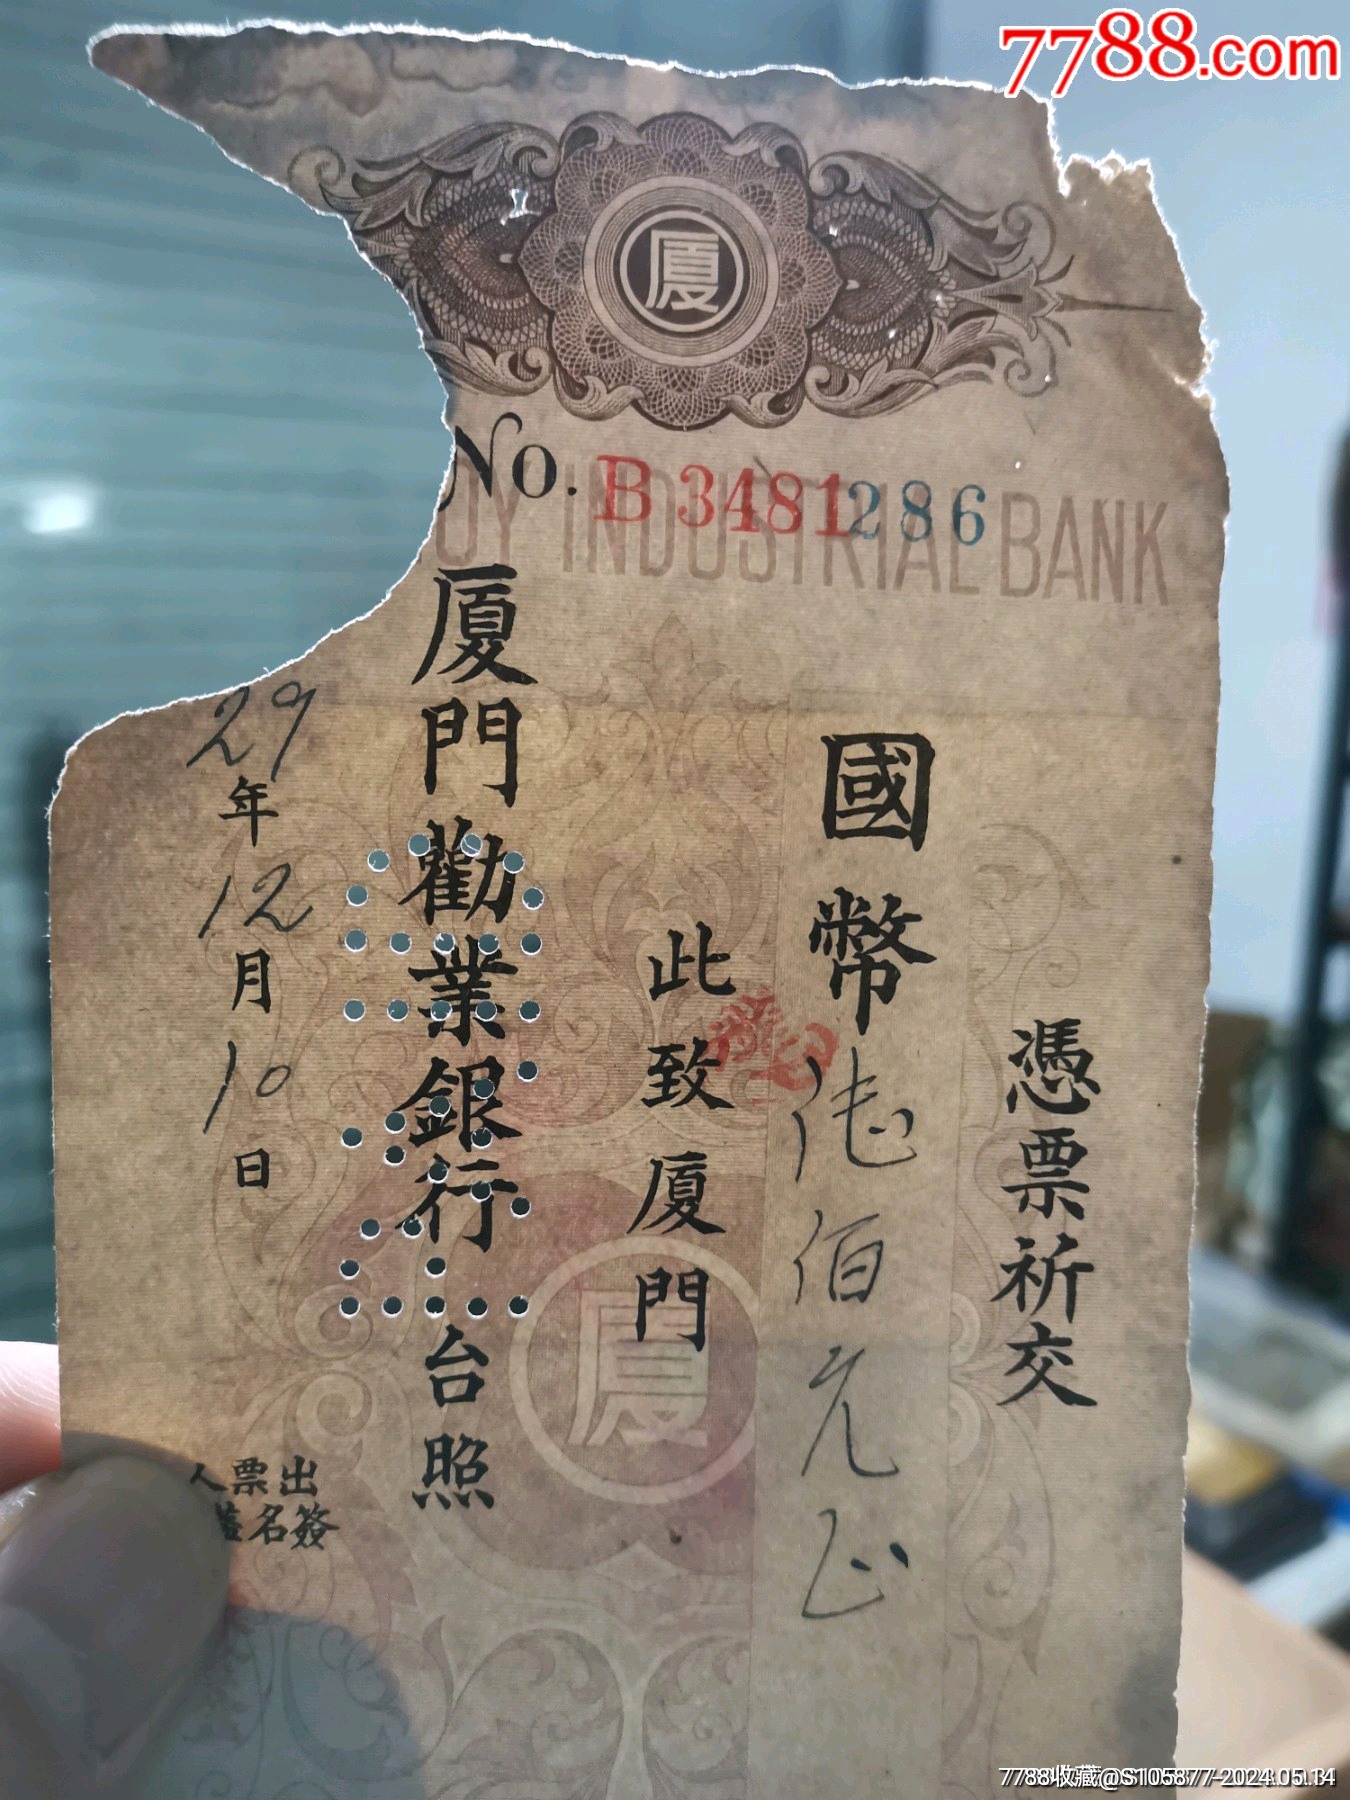 7788.com
厦
No. B 3481286
OY INDUSTRIAL BANK
憑票祈交
國幣陸佰元正
此致厦門
厦門勸業銀行台照
29年12月10日
厦
人票出
蓋名簽
7788收藏@S105877-2024.05.14